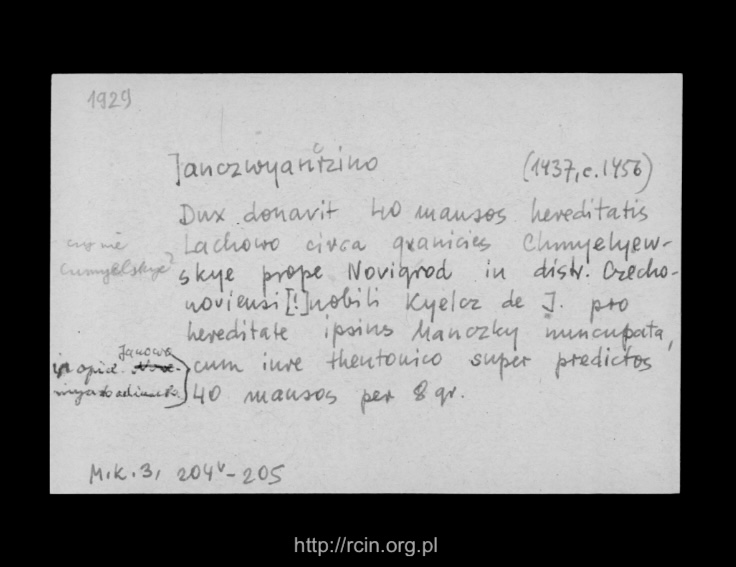 1929
Janczwyantzino (1437, c. 1456)
Dux donavit 40 mansos hereditatis
Lachowo circa granicies Chmyelyew-
skye prope Novigrod in distr. Czecho-
noviensi [!] nobili Kyelcz de J. pro
hereditate ipsius Manczky nuncupata,
cum iure theutonico super predictos
40 mansos per 8 gr.
czy nie
Cumyelskye?
in opid. Janowo
M.K. 3, 204v-205
http://rcin.org.pl